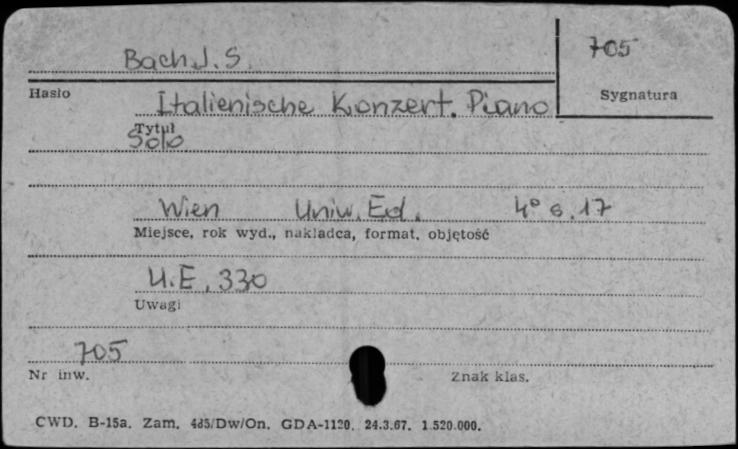 Bach J. S.
705
Hasło
Sygnatura
Italienische Konzert. Piano
Tytuł
Solo
Wien Uniw. Ed. 4° s. 17
Miejsce, rok wyd., nakładca, format, objętość
U.E. 330
Uwagi
705
Nr inw.
Znak klas.
CWD. B-15a. Zam. 485/Dw/On. GDA-1120. 24.3.67. 1.520.000.